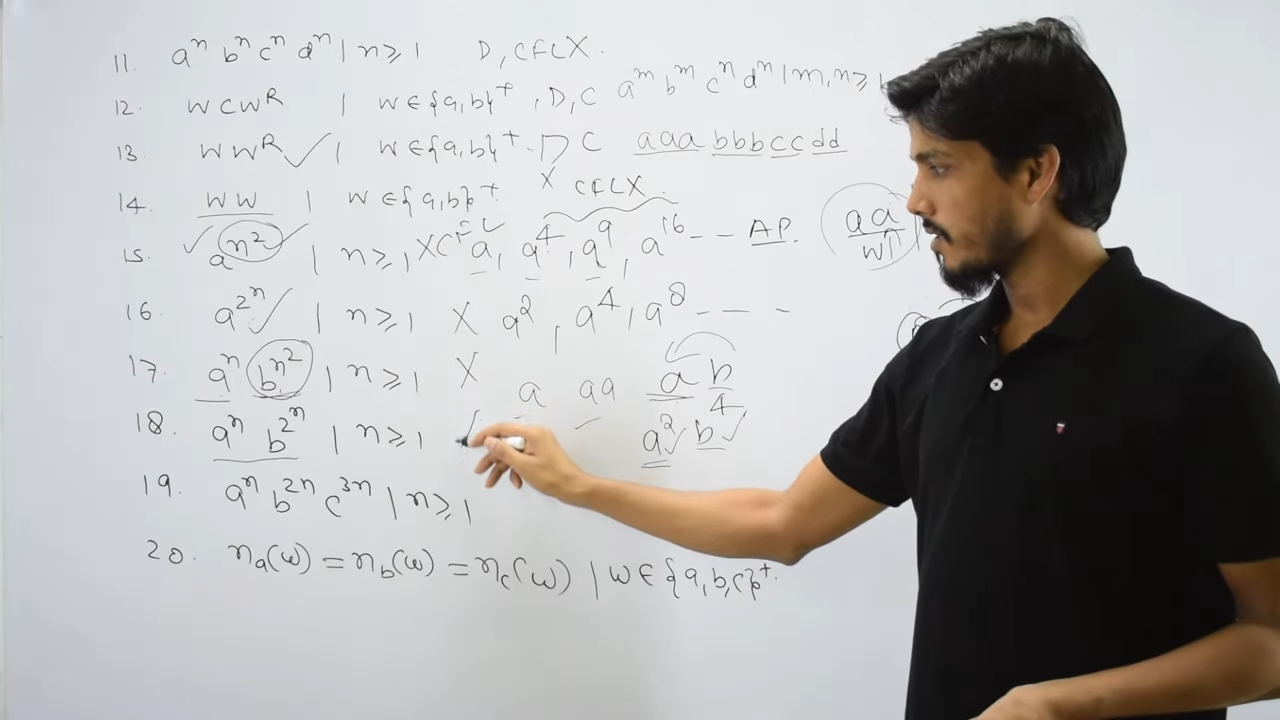 11. aⁿ bⁿ cⁿ dⁿ | n ≥ 1 D, CFL X.
12. W C Wᴿ | W ∈ {a, b}⁺, D, C aᵐ bᵐ cⁿ dⁿ | m, n ≥ 1
13. W Wᴿ ✓ | W ∈ {a, b}⁺. D C aaa bbb cc dd
14. W W | W ∈ {a, b}⁺ X CFL X.
15. ✓ a^(n²) ✓ | n ≥ 1 X CFL a, a⁴, a⁹, a¹⁶ -- AP. aa
W↑
16. a^(2ⁿ) ✓ | n ≥ 1 X a², a⁴, a⁸ - - -
17. aⁿ b^(n²) | n ≥ 1 X a aa a b
18. aⁿ b^(2ⁿ) | n ≥ 1 a² ✓ b⁴ ✓
19. aⁿ b²ⁿ c³ⁿ | n ≥ 1
20. nₐ(w) = n_b(w) = n_c(w) | W ∈ {a, b, c}⁺.